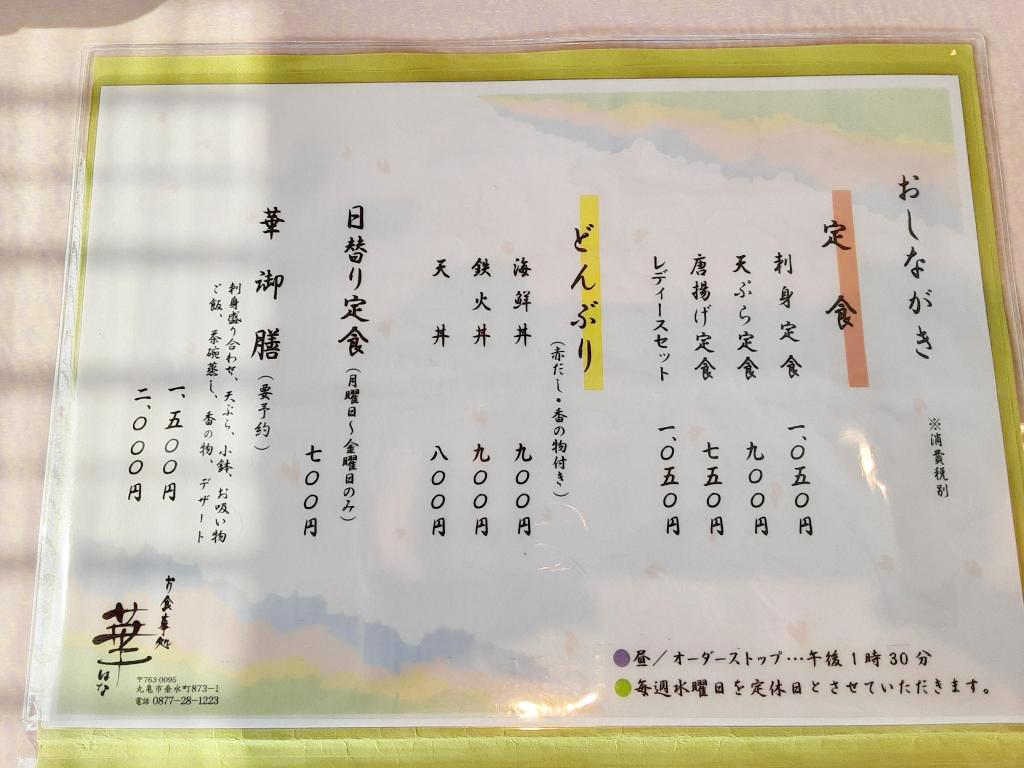 おしながき
※消費税別
定食
刺身定食 一、〇五〇円
天ぷら定食 九〇〇円
唐揚げ定食 七五〇円
レディースセット 一、〇五〇円
どんぶり
(赤だし・香の物付き)
海鮮丼 九〇〇円
鉄火丼 九〇〇円
天丼 八〇〇円
日替り定食(月曜日〜金曜日のみ)
七〇〇円
華御膳(要予約)
刺身盛り合わせ、天ぷら、小鉢、お吸い物
ご飯、茶碗蒸し、香の物、デザート
一、五〇〇円
二、〇〇〇円
●昼/オーダーストップ…午後1時30分
●毎週水曜日を定休日とさせていただきます。
お食事処
華
はな
〒763-0095
丸亀市垂水町873-1
電話 0877-28-1223